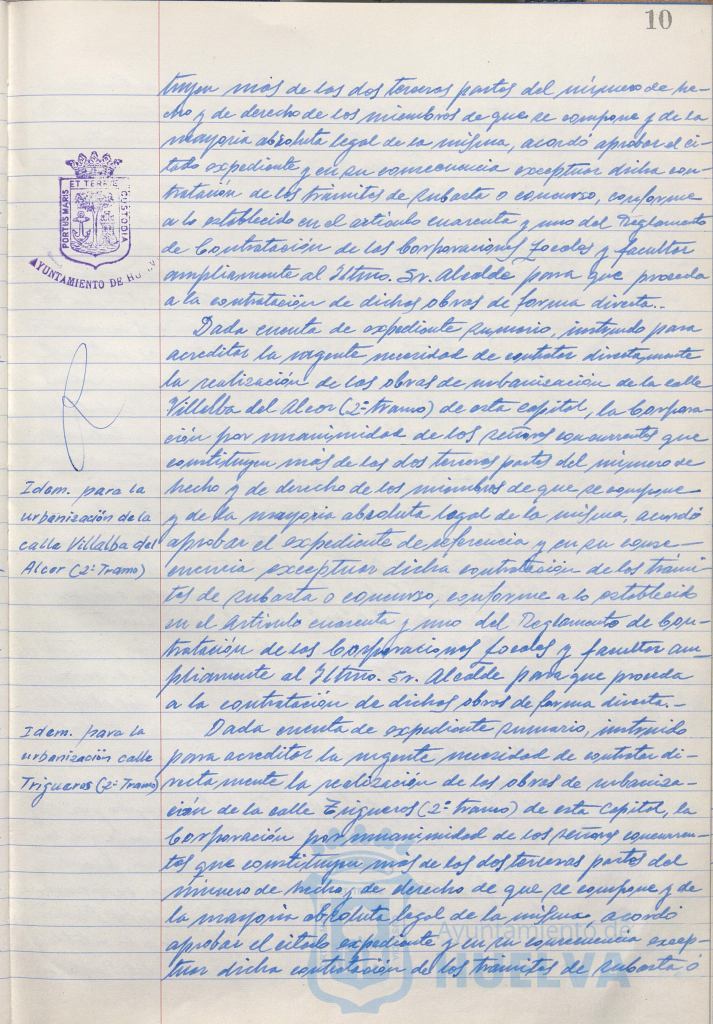 10
tuyen más de las dos terceras partes del número de he-
cho y de derecho de los miembros de que se compone y de la
mayoría absoluta legal de la misma, acordó aprobar el ci-
tado expediente y en su consecuencia exceptuar dicha con-
tratación de los trámites de subasta o concurso, conforme
a lo establecido en el artículo cuarenta y uno del Reglamento
de Contratación de las Corporaciones Locales y facultar
ampliamente al Iltmo. Sr. Alcalde para que proceda
a la contratación de dichas obras de forma directa..
PORTUS MARIS ET TERRE CUSTODIA
AYUNTAMIENTO DE HUELVA
Dada cuenta de expediente sumario, instruido para
acreditar la urgente necesidad de contratar directamente
la realización de las obras de urbanización de la calle
Villalba del Alcor (2º tramo) de esta capital, la Corpora-
ción por unanimidad de los señores concurrentes que
constituyen más de las dos terceras partes del número de
hecho y de derecho de los miembros de que se compone
y de la mayoría absoluta legal de la misma, acordó
aprobar el expediente de referencia y en su conse-
cuencia exceptuar dicha contratación de los trámi-
tes de subasta o concurso, conforme a lo establecido
en el artículo cuarenta y uno del Reglamento de Con-
tratación de las Corporaciones Locales y facultar am-
pliamente al Iltmo. Sr. Alcalde para que proceda
a la contratación de dichas obras de forma directa.-
Idem. para la
urbanización de la
calle Villalba del
Alcor (2º Tramo)
Dada cuenta de expediente sumario, instruido
para acreditar la urgente necesidad de contratar di-
rectamente la realización de las obras de urbaniza-
ción de la calle Trigueros (2º tramo) de esta Capital, la
Corporación por unanimidad de los señores concurren-
tes que constituyen más de las dos terceras partes del
número de hecho y de derecho de que se compone y de
la mayoría absoluta legal de la misma, acordó
aprobar el citado expediente y en su consecuencia excep-
tuar dicha contratación de los trámites de subasta ó
Idem. para la
urbanización calle
Trigueros (2º Tramo)
Ayuntamiento de
HUELVA